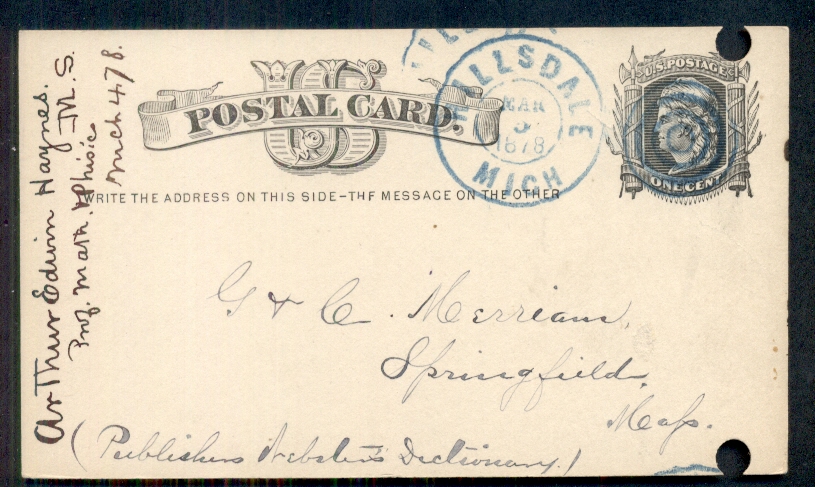 US
POSTAL CARD.
WRITE THE ADDRESS ON THIS SIDE-THE MESSAGE ON THE OTHER
HILLSDALE
MAR
1878
MICH
U.S. POSTAGE
ONE CENT
G & C. Merriam,
Springfield,
Mass.
(Publishers Webster's Dictionary.)
Arthur Edwin Haynes. M.S.
Prof. Math. & Phisics
Mch 4 78.